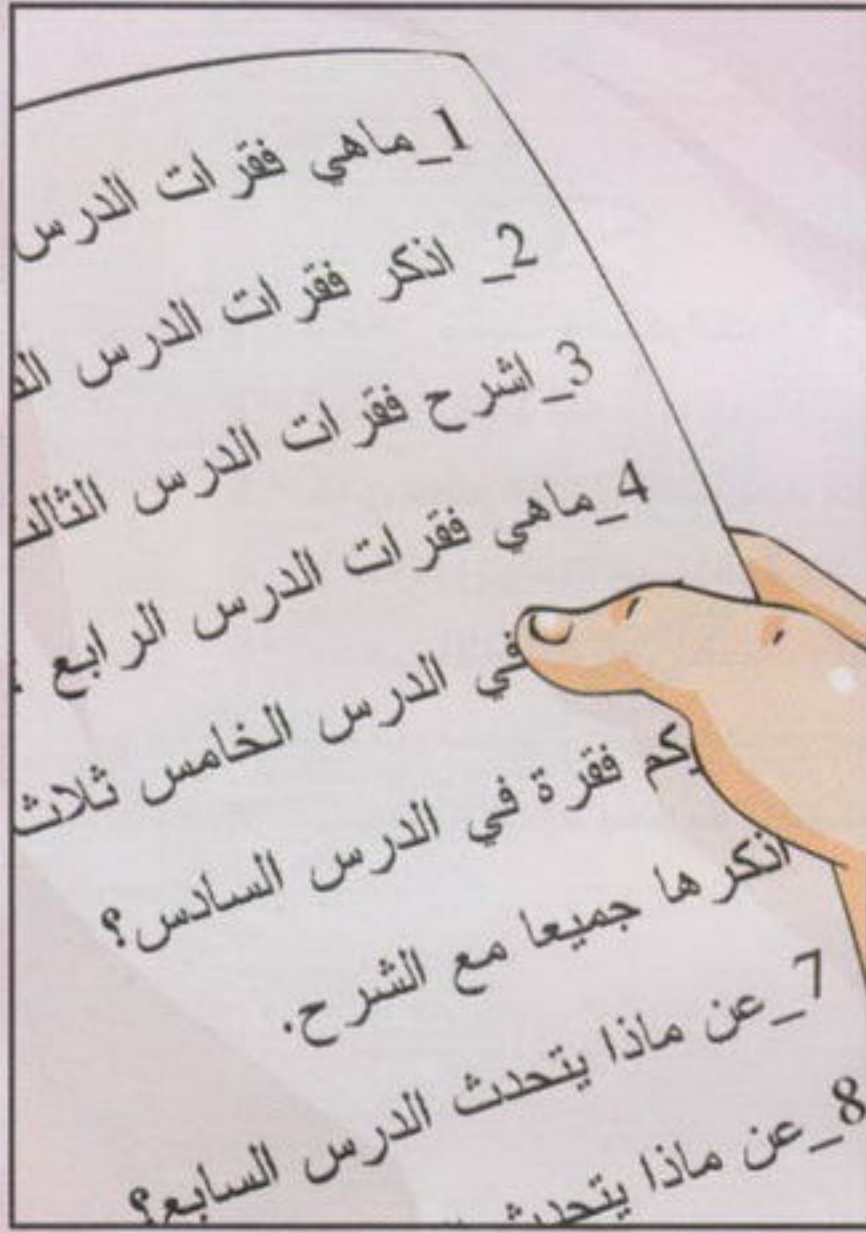 1_ماهي فقرات الدرس
2_ اذكر فقرات الدرس
3_اشرح فقرات الدرس
4_ماهي فقرات الدرس الرابع
في الدرس الخامس ثلاث
كم فقرة في الدرس السادس؟
اذكرها جميعا مع الشرح.
7_عن ماذا يتحدث الدرس السابع؟
8_عن ماذا يتحدث